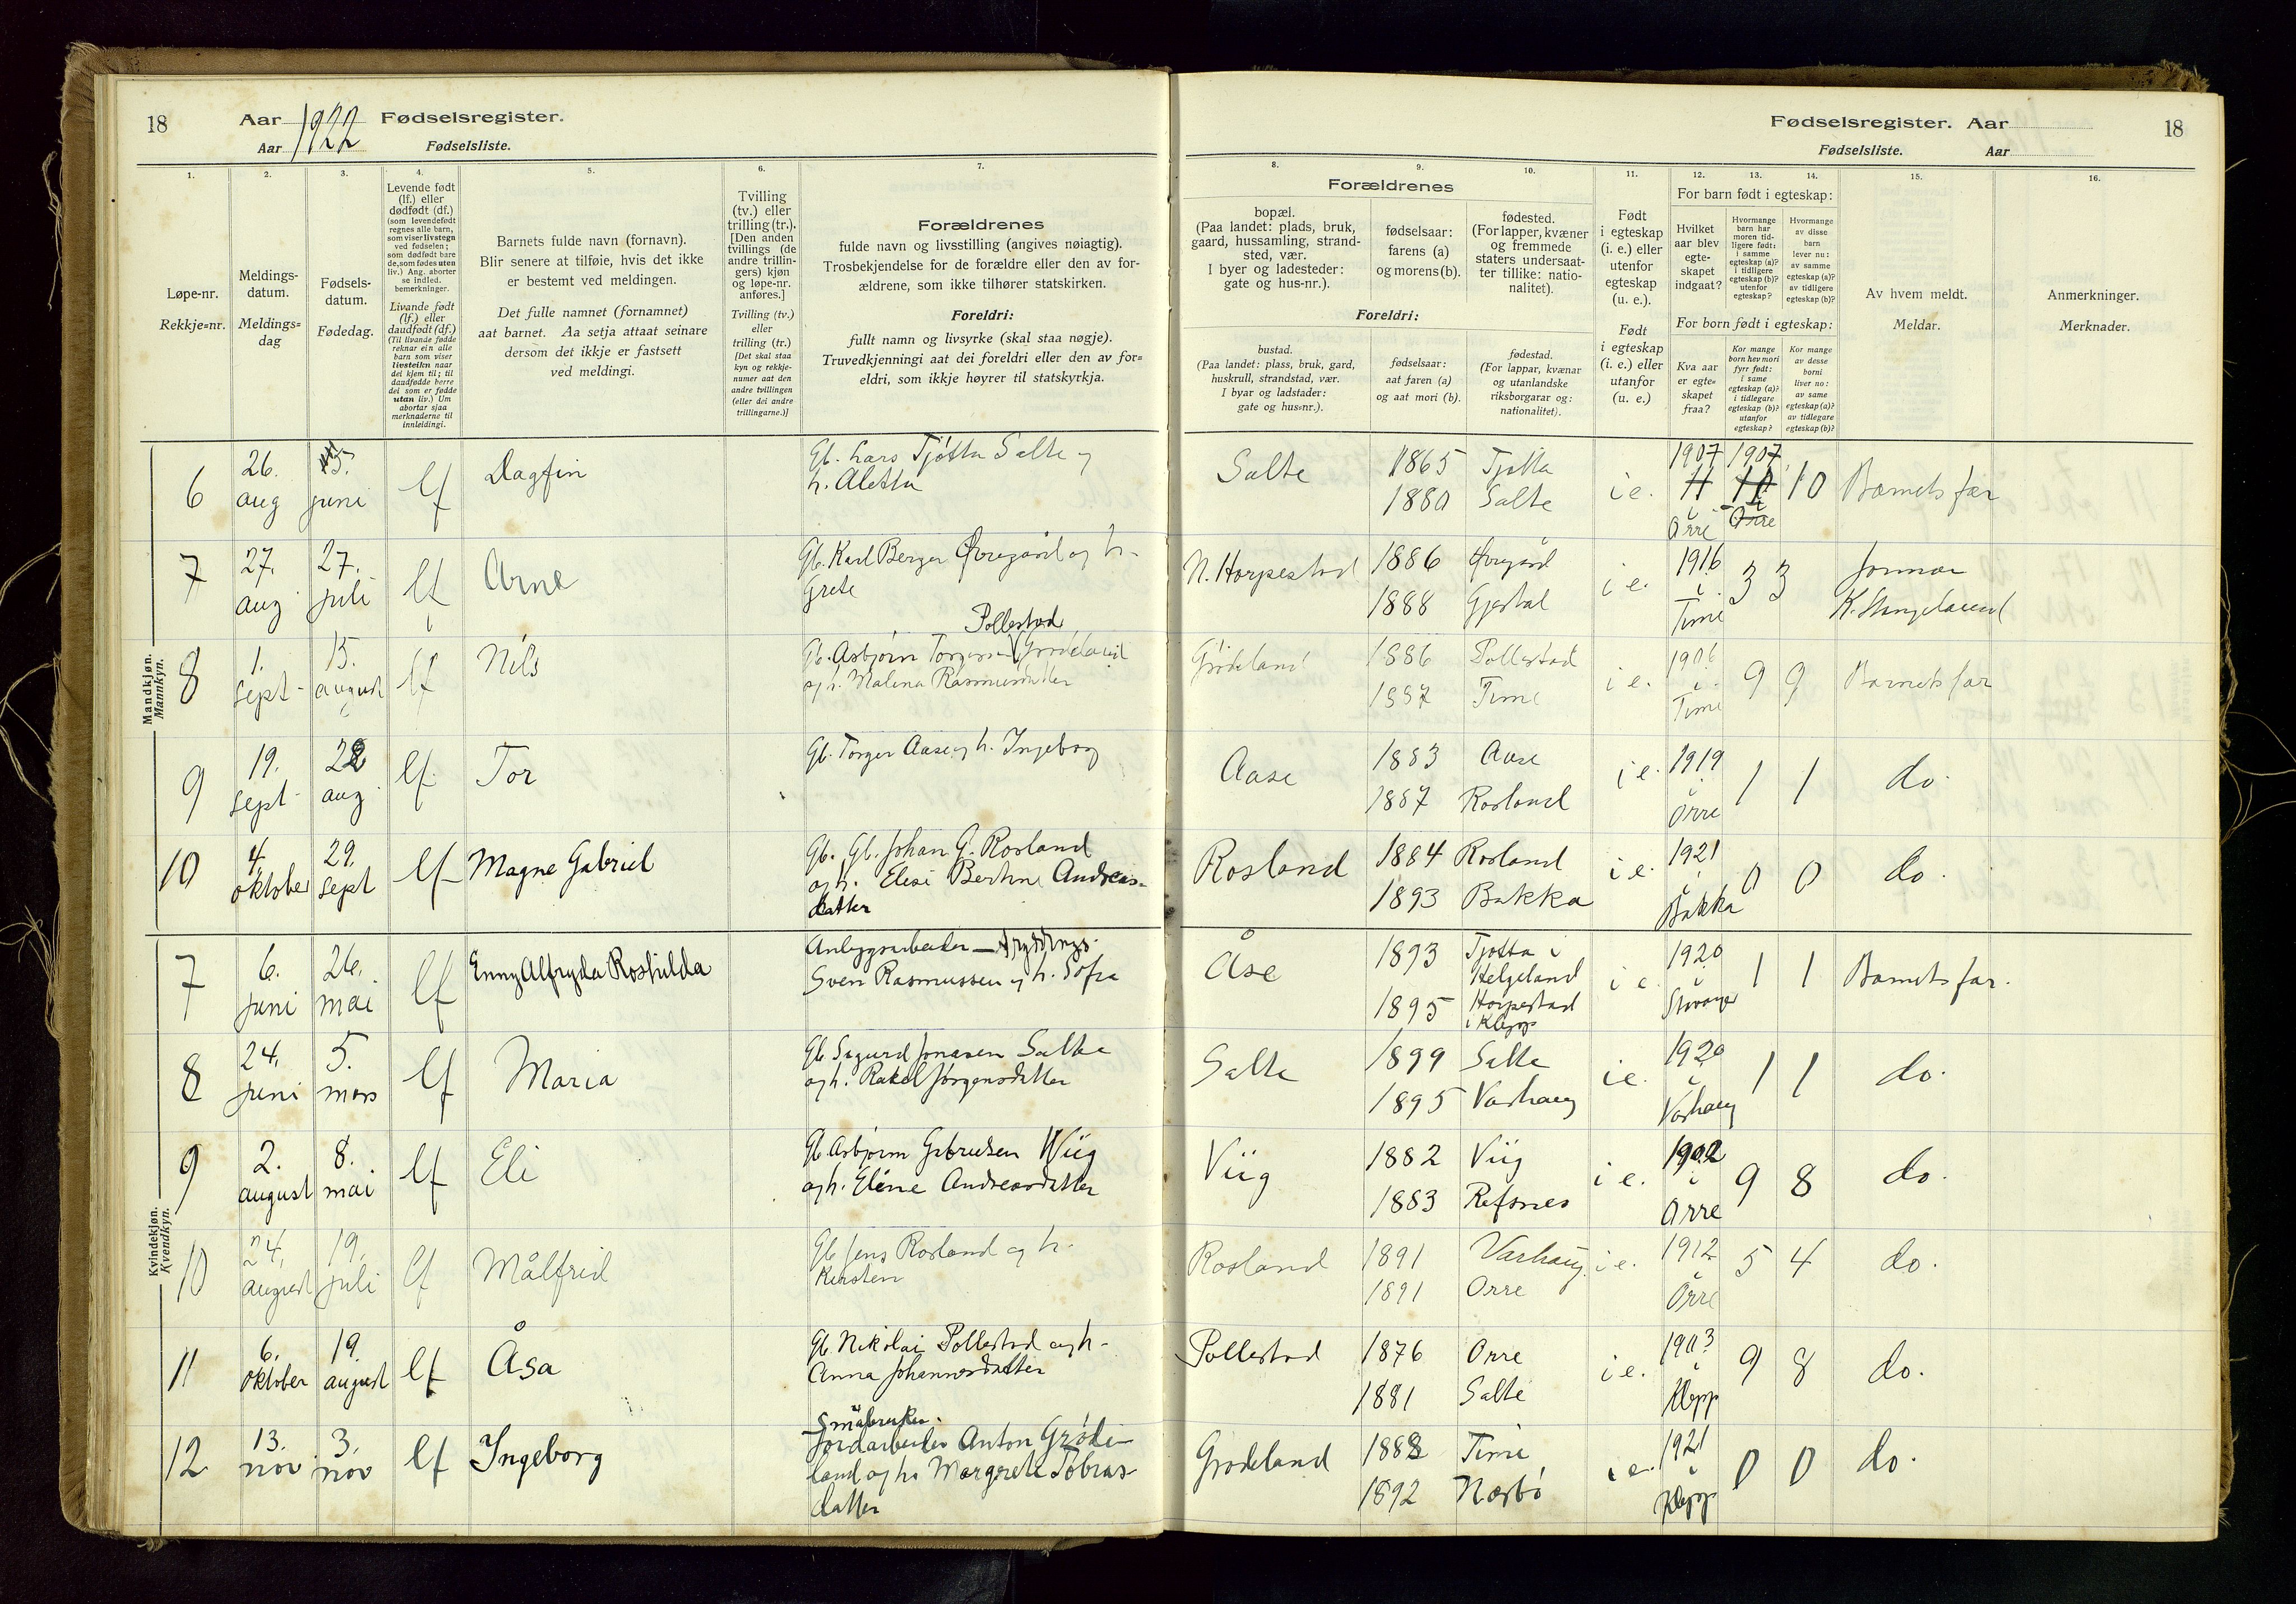 18
Aar 1922 Fødselsregister.
Aar 1922 Fødselsliste.
1.
2.
3.
4.
5.
6.
7.
Løpe-nr.
Rekkje=nr.
Meldings-
datum.
Meldings=
dag
Fødsels-
datum.
Fødedag.
Levende født
(lf.) eller
dødfødt (df.)
(som levendefødt
regnes alle barn,
som viser livstegn
ved fødselen;
som dødfødt bare
de, som fødes uten
liv.) Ang. aborter
se indled.
bemerkninger.
Livande født
(lf.) eller
daudfødt (df.)
(Til livande fødde
reknar ein alle
barn som viser
livsteikn naar
dei kjem til; til
daudfødde berre
dei som er fødde
utan liv.) Um
abortar sjaa
merknaderne til
innleidingi.
Barnets fulde navn (fornavn).
Blir senere at tilføie, hvis det ikke
er bestemt ved meldingen.
Det fulle namnet (fornamnet)
aat barnet. Aa setja attaat seinare
dersom det ikkje er fastsett
ved meldingi.
Tvilling
(tv.) eller
trilling (tr.).
[Den anden
tvillings (de
andre trillin-
gers) kjøn
og løpe-nr.
anføres.]
Tvilling (tv.)
eller
trilling (tr.)
[Det skal staa
kyn og rekkje-
numer aat den
andre tvillingen
(eller dei andre
trillingarne.)]
Forældrenes
fulde navn og livsstilling (angives nøiagtig).
Trosbekjendelse for de forældre eller den av for-
ældrene, som ikke tilhører statskirken.
Foreldri:
fullt namn og livsyrke (skal staa nøgje).
Truvedkjenningi aat dei foreldri eller den av for=
eldri, som ikkje høyrer til statskyrkja.
Fødselsregister. Aar
18
Fødselsliste. Aar
8.
9.
10.
11.
12.
13.
14.
15.
16.
Forældrenes
bopæl.
(Paa landet: plads, bruk,
gaard, hussamling, strand-
sted, vær.
I byer og ladesteder:
gate og hus-nr.).
fødselsaar:
farens (a)
og morens (b).
fødested.
(For lapper, kvæner
og fremmede
staters undersaat-
ter tillike: natio-
nalitet).
Foreldri:
bustad.
(Paa landet: plass, bruk, gard,
huskrull, strandstad, vær.
I byar og ladstader:
gate og hus=nr.).
fødselsaar:
aat faren (a)
og aat mori (b).
fødestad.
(For lappar, kvænar
og utanlandske
riksborgarar og:
nationalitet).
Født
i egteskap
(i. e.) eller
utenfor
egteskap
(u. e.).
Født
i egteskap
(i. e.) eller
utanfor
(u. e.)
For barn født i egteskap:
Hvilket
aar blev
egte-
skapet
indgaat?
Hvormange
barn har
moren tid-
ligere født:
i samme
egteskap (a)?
i tidligere
egteskap (b)?
utenfor
egteskap?
Hvormange
av disse
barn
lever nu:
av samme
egteskap (a)?
av tidligere
egteskap (b)?
For born født i egteskap:
Kva aar
er egte=
skapet
fraa?
Kor mange
born hev mori
fyrr født:
i same
egteskap (a)?
i tidlegare
egteskap (b)?
utanfor
egteskap?
Kor mange
av desse
borni
liver no:
av same
egteskap (a)?
av tidlegare
egteskap (b)?
Av hvem meldt.
Meldar.
Anmerkninger.
Merknader.
Mandkjøn.
Mannkyn.
6 26. aug 5. juni lf Dagfin Gb. Lars Tjøtta Salte og
h. Aletta
Salte 1865 1880 Tjøtta Salte i e. 1907 i Orre 1907 10 Barnets far
7 27. aug 27. juli lf Arne Gb. Karl Berger Øvregård og h.
Grete
N. Horpestad 1886 1888 Øvregård Gjestal i e. 1916 i Time 3 3 Jormor
8 1. sept 15. august lf Nils Pollestad
Gb. Asbjørn Torgersen (Grødeland
og h. Malena Rasmusdatter
Grødeland 1886 1887 Pollestad Time i e. 1906 i Time 9 9 Barnets far
9 19. sept 22 aug lf. Tor Gb. Torger Aase og h. Ingeborg
Aase 1883 1887 Aase Rosland i e. 1919 i Orre 1 1 do.
10 4. oktober 29. sept lf Magne Gabriel Gb. Gb. Johan G. Rosland
og h. Elise Bertine Andreas-
datter
Rosland 1884 1893 Rosland Bakka i e. 1921 i Bakka 0 0 do.
Kvindekjøn.
Kvendkyn.
7 6. juni 26. mai lf Enny Alfryda Rosfulda Anleggsarbeider
Sven Rasmussen og h. Sofia
Åse 1893 1895 Tjøtta i Helgeland Horpestad i Klepp i e. 1920 i Stavanger 1 1 Barnets far.
8 24. juni 5. mars lf Maria Gb. Sigurd Jonasen Salte
og h. Rakel Jørgensdatter
Salte 1899 1895 Salte Varhaug i e. 1920 i Varhaug 1 1 do.
9 2. august 8. mai lf Eli Gb. Asbjørn Gabrielsen Wiig
og h. Eline Andreasdatter
Viig 1882 1883 Viig Refsnes i e. 1902 i Orre 9 8 do.
10 24. august 19. juli lf Målfrid Gb. Jens Rosland og h.
Kirsten
Rosland 1891 1891 Varhaug Orre i e. 1912 i Orre 5 4 do.
11 6. oktober 19. august lf Åsa Gb. Nikolai Pollestad og h.
Anna Johannesdatter
Pollestad 1876 1881 Orre Salte i e. 1903 i Klepp 9 8 do.
12 13. nov 3. nov lf Ingeborg Småbruker.
Jordarbeider Anton Grøde-
land og h. Margrete Tobias-
datter
Grødeland 1888 1892 Time Nærbø i e. 1921 i Klepp 0 0 do.